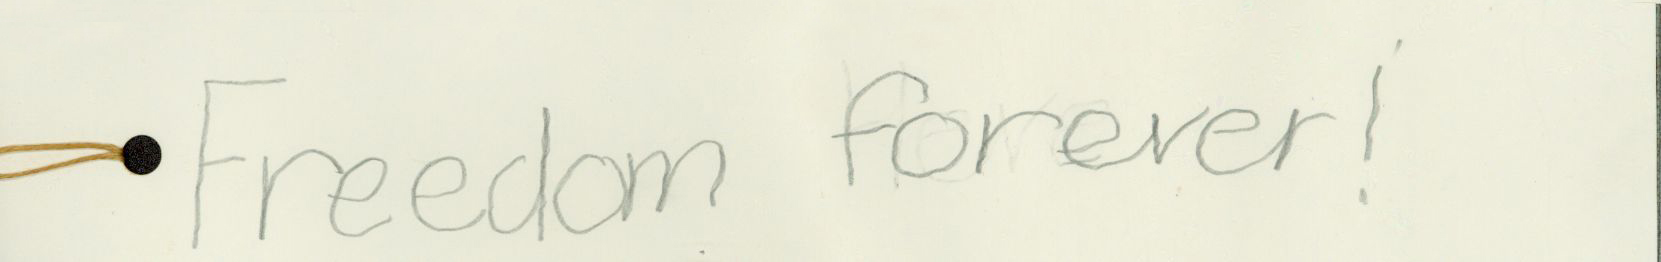 Freedom forever!